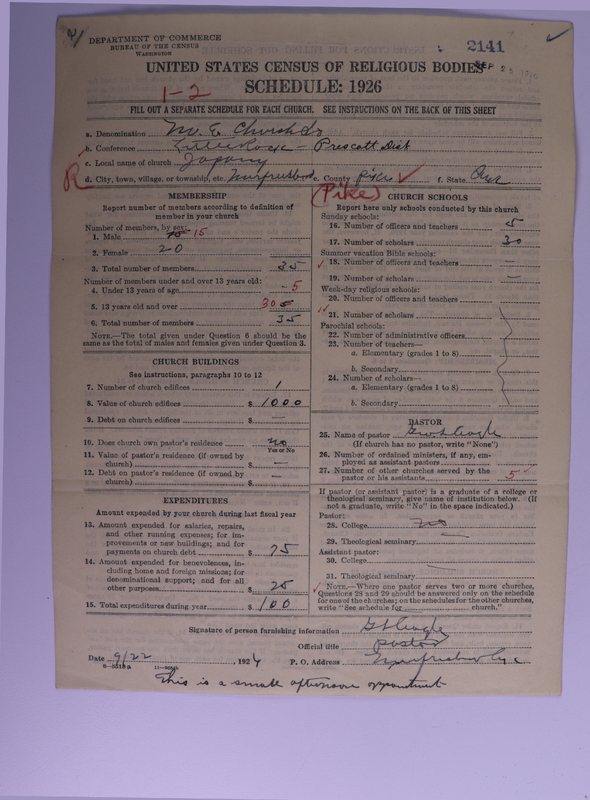 DEPARTMENT OF COMMERCE
BUREAU OF THE CENSUS
WASHINGTON
2141
SEP 25
UNITED STATES CENSUS OF RELIGIOUS BODIES
SCHEDULE: 1926
1-2
FILL OUT A SEPARATE SCHEDULE FOR EACH CHURCH. SEE INSTRUCTIONS ON THE BACK OF THIS SHEET
a. Denomination M. E. Church So
b. Conference Little Rock - Prescott Dist
c. Local name of church
R
d. City, town, village, or township, etc. Murfreesboro e. County Pike f. State Ark
(Pike)
MEMBERSHIP
Report number of members according to definition of member in your church
Number of members, by sex:
1. Male 15 15
2. Female 20
3. Total number of members 35
Number of members under and over 13 years old:
4. Under 13 years of age 5
5. 13 years old and over 30
6. Total number of members 35
NOTE.—The total given under Question 6 should be the same as the total of males and females given under Question 3.
CHURCH BUILDINGS
See instructions, paragraphs 10 to 12
7. Number of church edifices 1
8. Value of church edifices $ 1000
9. Debt on church edifices $ —
10. Does church own pastor's residence no
Yes or No
11. Value of pastor's residence (if owned by church) $ —
12. Debt on pastor's residence (if owned by church) $ —
EXPENDITURES
Amount expended by your church during last fiscal year
13. Amount expended for salaries, repairs, and other running expenses; for improvements or new buildings; and for payments on church debt $ 75
14. Amount expended for benevolences, including home and foreign missions; for denominational support; and for all other purposes $ 25
15. Total expenditures during year $ 100
CHURCH SCHOOLS
Report here only schools conducted by this church
Sunday schools:
16. Number of officers and teachers 5
17. Number of scholars 30
Summer vacation Bible schools:
18. Number of officers and teachers —
19. Number of scholars —
Week-day religious schools:
20. Number of officers and teachers
21. Number of scholars
Parochial schools:
22. Number of administrative officers
23. Number of teachers—
a. Elementary (grades 1 to 8)
b. Secondary
24. Number of scholars—
a. Elementary (grades 1 to 8)
b. Secondary
PASTOR
25. Name of pastor
(If church has no pastor, write "None")
26. Number of ordained ministers, if any, employed as assistant pastors
27. Number of other churches served by the pastor or his assistants 5
If pastor (or assistant pastor) is a graduate of a college or theological seminary, give name of institution below. (If not a graduate, write "No" in the space indicated.)
Pastor:
28. College no
29. Theological seminary —
Assistant pastor:
30. College —
31. Theological seminary
NOTE.—Where one pastor serves two or more churches, Questions 28 and 29 should be answered only on the schedule for one of the churches; on the schedules for the other churches, write "See schedule for church."
Signature of person furnishing information
Official title pastor
Date 9/22, 192 P. O. Address Murfreesboro
This is a small afternoon appointment